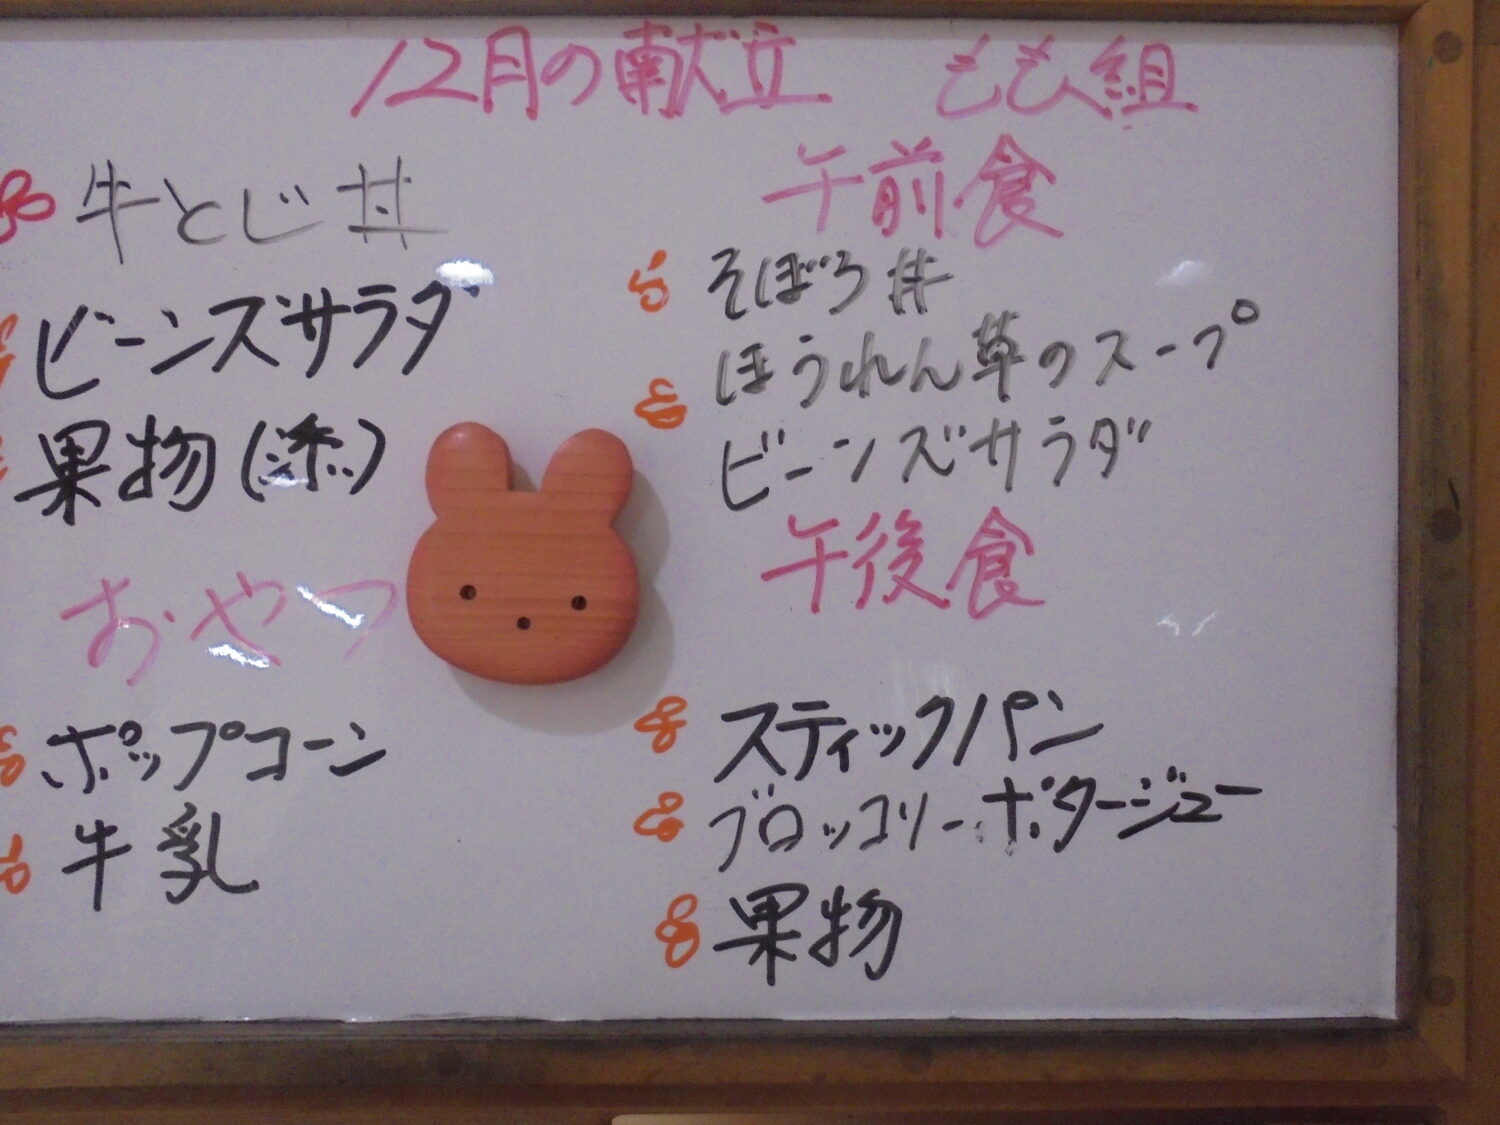 12月の献立 もも組
牛とじ丼
ビーンズサラダ
果物(柿)
おやつ
ポップコーン
牛乳
午前食
そぼろ丼
ほうれん草のスープ
ビーンズサラダ
午後食
スティックパン
ブロッコリーポタージュー
果物